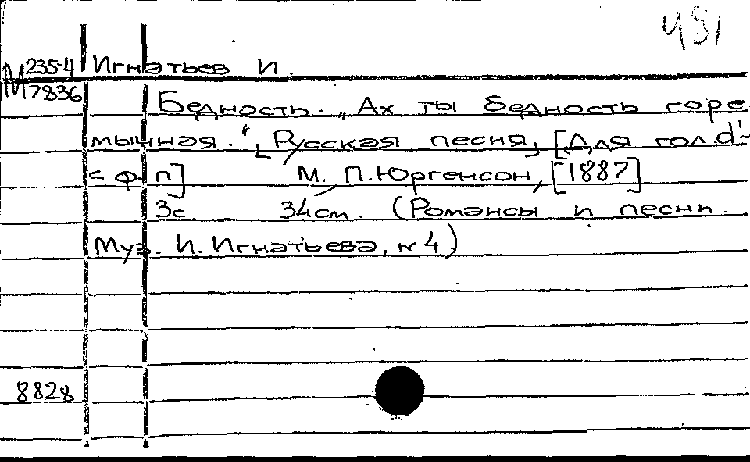 451
М 235-4 Игнатьев И
7836
Бедность. „Ах ты бедность горе
мычная." [Русская песня, [Для гол d'-
с ф п] М. П. Юргенсон, [1887]
3с 34см. (Романсы и песни.
Муз. И. Игнатьева, № 4)
8828